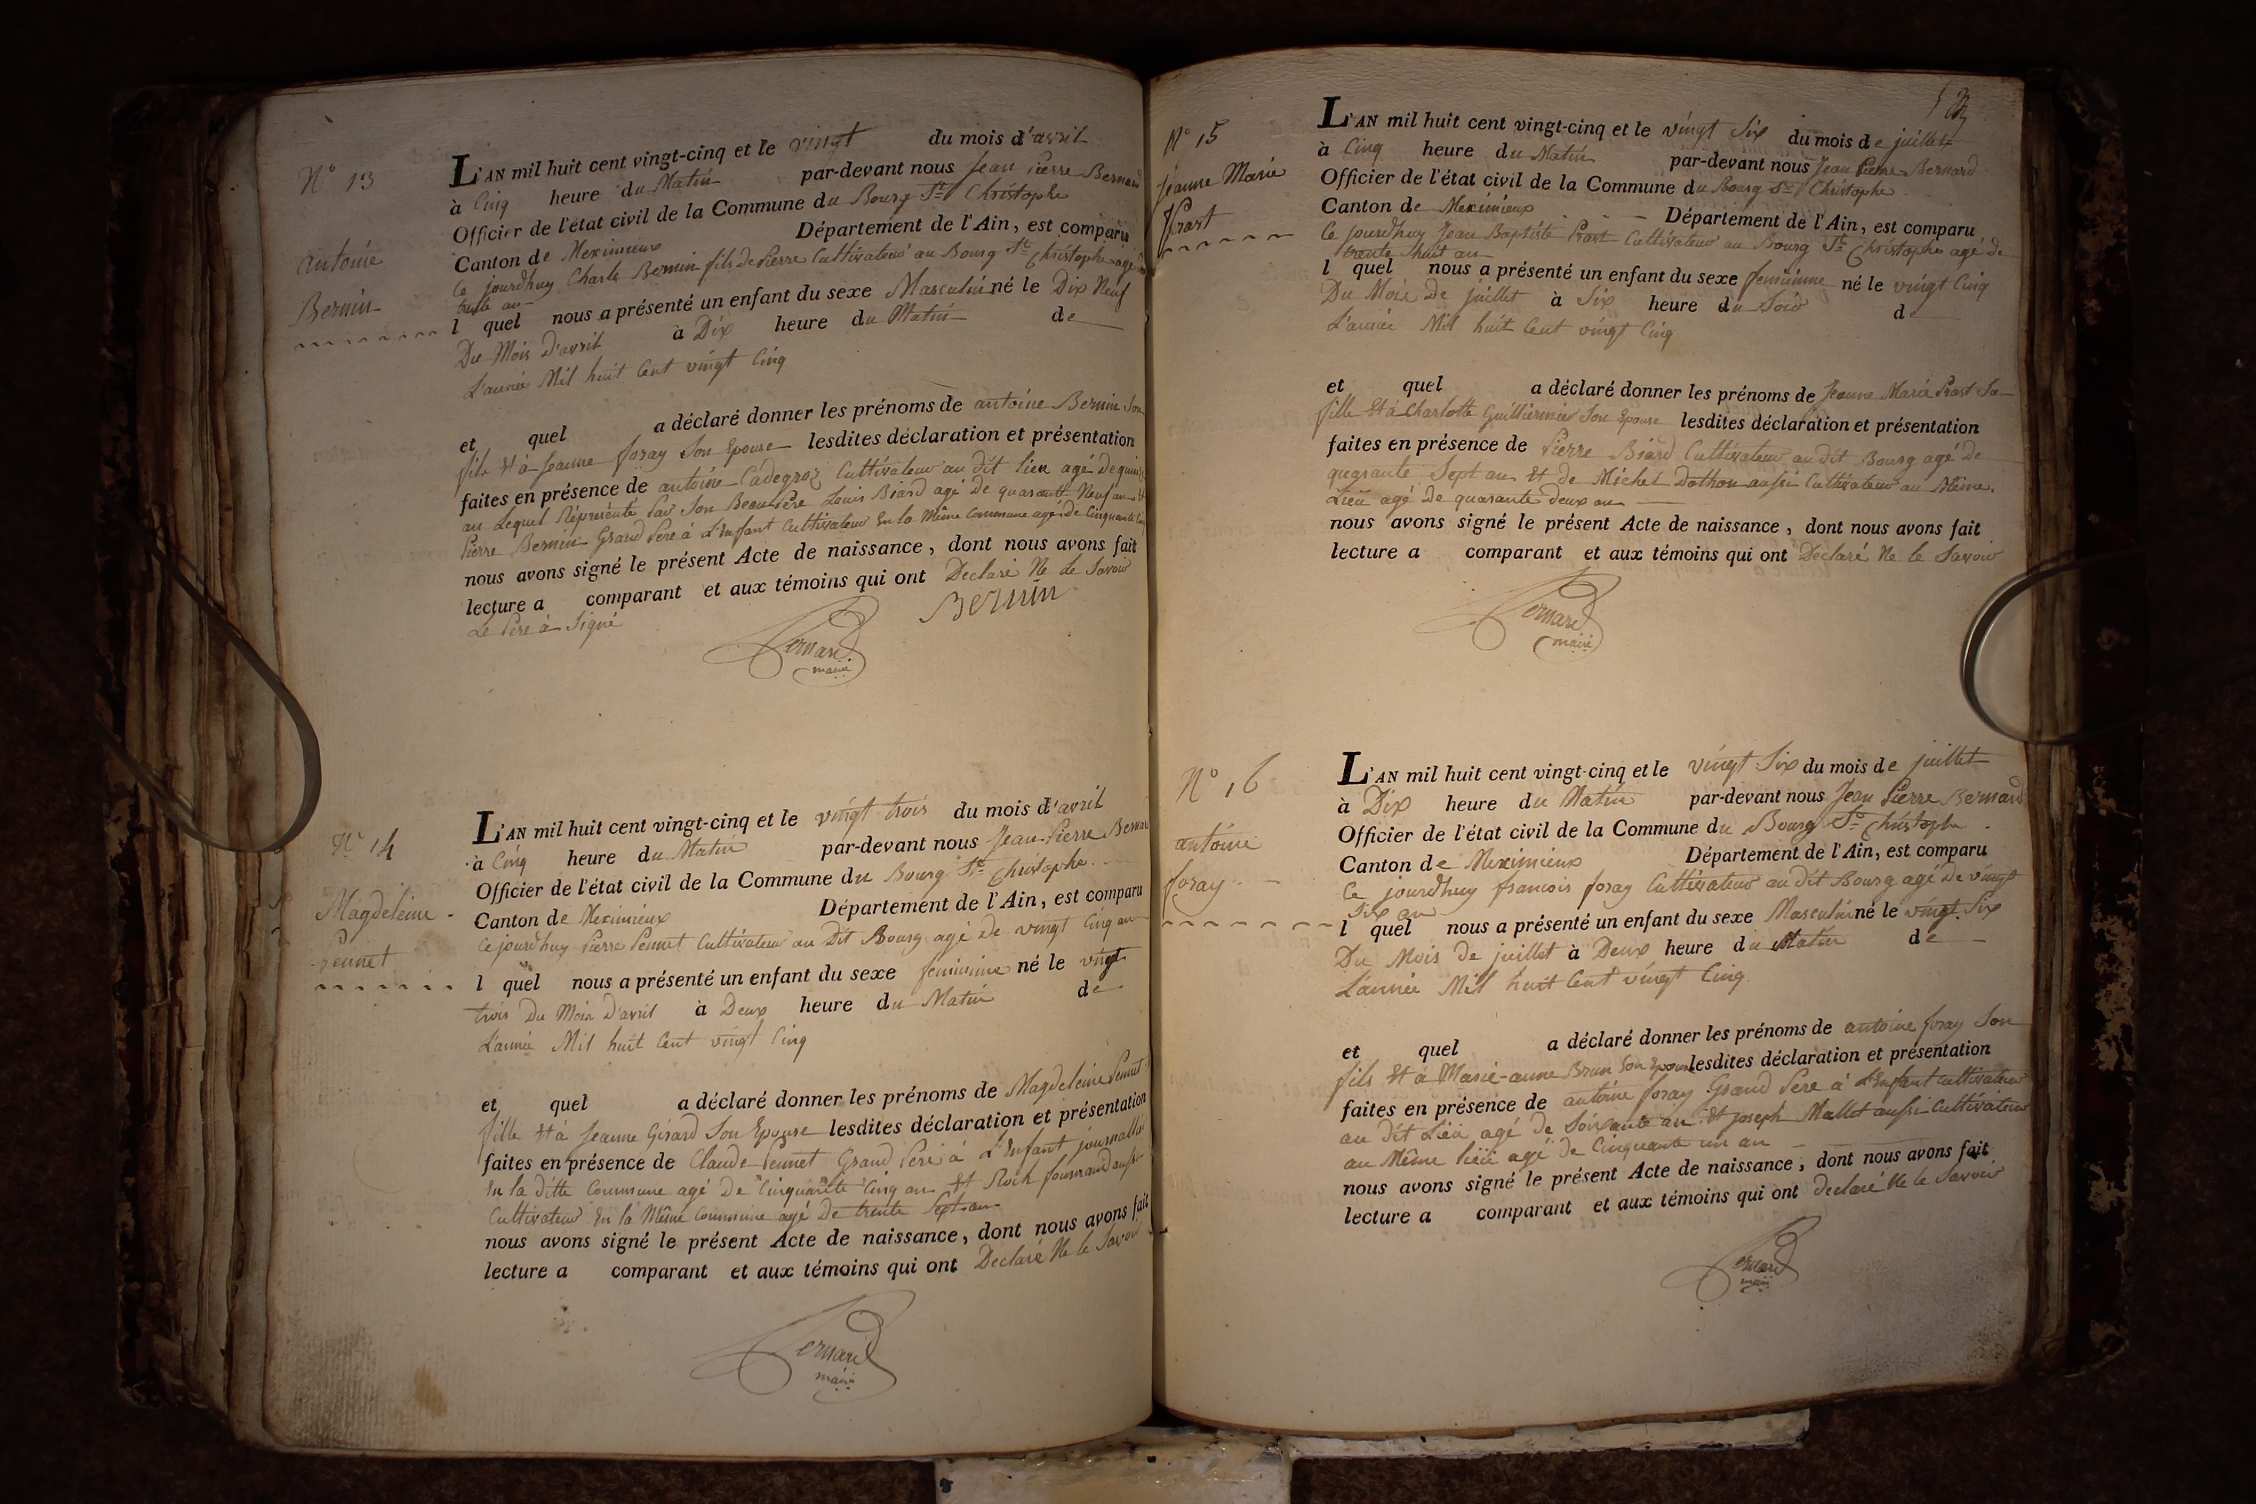 N° 13
antoine
Bernin
L'AN mil huit cent vingt-cinq et le vingt du mois d'avril
à Cinq heure du Matin par-devant nous Jean Pierre Bernard
Officier de l'état civil de la Commune du Bourg St Christophe
Canton de Meximieux Département de l'Ain, est comparu
Ce jourdhuy Charle Bernin fils de Pierre Cultivateur au Bourg St Christophe agé de
trente an
l quel nous a présenté un enfant du sexe Masculin né le Dix Neuf
Du Mois d'avril à Dix heure du Matin de
L'année Mil huit Cent vingt Cinq
et quel a déclaré donner les prénoms de antoine Bernin Son
fils Et à Jeanne foray Son Epouse lesdites déclaration et présentation
faites en présence de antoine Cadegroz Cultivateur au dit lieu agé de quinze
an Lequel Réprésenté Par Son Beau Père Louis Biard agé De quarante Neuf an Et
Pierre Bernin Grand Père à L'Enfant Cultivateur En la Même Commune agé de Cinquante
nous avons signé le présent Acte de naissance, dont nous avons fait
lecture a comparant et aux témoins qui ont Declaré Ne le Savoir
Le Père à Signé
Bernin
Bernard
maire
N° 14
Magdeleine
Pennet
L'AN mil huit cent vingt-cinq et le vingt trois du mois d'avril
à Cinq heure du Matin par-devant nous Jean-Pierre Bernard
Officier de l'état civil de la Commune du Bourg St Christophe
Canton de Meximieux Département de l'Ain, est comparu
Ce jourdhuy Pierre Pennet Cultivateur au Dit Bourg agé de vingt Cinq an
l quel nous a présenté un enfant du sexe feminine né le vingt
trois Du Mois D'avril à Deux heure du Matin de
L'année Mil huit Cent vingt Cinq
et quel a déclaré donner les prénoms de Magdeleine Pennet
fille Et à Jeanne Girard Son Epouse lesdites déclaration et présentation
faites en présence de Claude Pennet Grand Père à L'Enfant journallié
En la ditte Commune agé De Cinquante Cinq an Et Roch fournand aussi
Cultivateur En la Même Commune agé De trente Sept an
nous avons signé le présent Acte de naissance, dont nous avons fait
lecture a comparant et aux témoins qui ont Declaré Ne le Savoir
Bernard
maire
N° 15
jeanne Marie
Prost
L'AN mil huit cent vingt-cinq et le vingt Six du mois de juillet
à Cinq heure du Matin par-devant nous Jean Pierre Bernard
Officier de l'état civil de la Commune du Bourg St Christophe
Canton de Meximieux Département de l'Ain, est comparu
Ce jourdhuy Jean Baptiste Prost Cultivateur au Bourg St Christophe agé de
trente huit an
l quel nous a présenté un enfant du sexe feminine né le vingt Cinq
Du Mois De juillet à Six heure du Soir de
L'année Mil huit Cent vingt Cinq
et quel a déclaré donner les prénoms de Jeanne Marie Prost Sa
fille Et à Charlotte Guilliermin Son Epouse lesdites déclaration et présentation
faites en présence de Pierre Biard Cultivateur au dit Bourg agé de
quarante Sept an Et de Michel Dothon aussi Cultivateur au Même
Lieu agé De quarante deux an
nous avons signé le présent Acte de naissance, dont nous avons fait
lecture a comparant et aux témoins qui ont Déclaré Ne le Savoir
Bernard
maire
N° 16
antoine
foray
L'AN mil huit cent vingt-cinq et le vingt Six du mois de juillet
à Dix heure du Matin par-devant nous Jean Pierre Bernard
Officier de l'état civil de la Commune du Bourg St Christophe
Canton de Meximieux Département de l'Ain, est comparu
Ce jourdhuy francois foray Cultivateur au dit Bourg agé De vingt
Six an
l quel nous a présenté un enfant du sexe Masculin né le vingt Six
Du Mois de juillet à Deux heure du Matin de
L'année Mil huit Cent vingt Cinq
et quel a déclaré donner les prénoms de antoine foray Son
fils Et à Marie-anne Brun Son Epouse lesdites déclaration et présentation
faites en présence de antoine foray Grand Père à L'Enfant Cultivateur
au dit Lieu agé de Soixante an Et joseph Mallet aussi Cultivateur
au Même lieu agé De Cinquante un an
nous avons signé le présent Acte de naissance, dont nous avons fait
lecture a comparant et aux témoins qui ont declaré Ne le Savoir
Bernard
maire